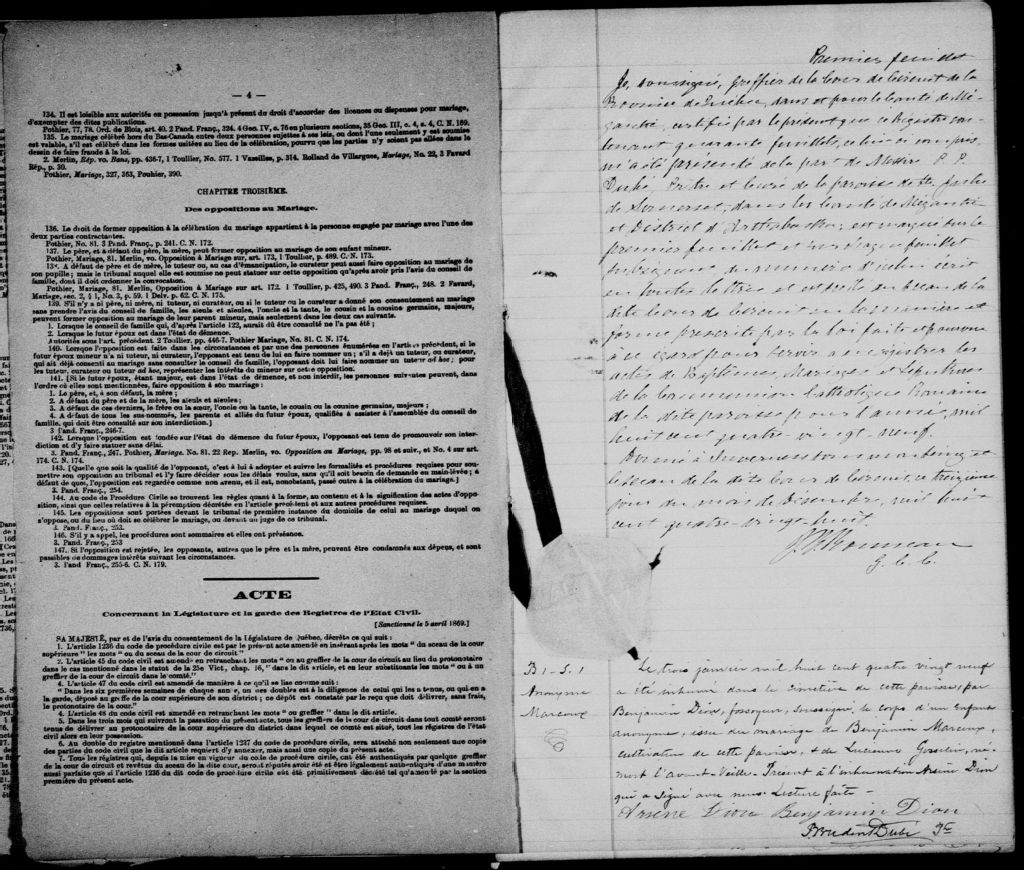 — 4 —
134. Il est loisible aux autorités en possession jusqu'à présent du droit d'accorder des licences ou dispenses pour mariage,
d'exempter des dites publications.
Pothier, 77, 78. Ord. de Blois, art. 40. 2 Pand. Franç., 324. 4 Geo. IV, c. 76 en plusieurs sections, 35 Geo. III, c. 4, s. 4, C. N. 169.
135. Le mariage célébré hors du Bas-Canada entre deux personnes sujettes à ses lois, ou dont l'une seulement y est soumise
est valable, s'il est célébré dans les formes usitées au lieu de la célébration, pourvu que les parties n'y soient pas allées dans le
dessein de faire fraude à la loi.
2. Merlin, Rép. vo. Bans, pp. 436-7, 1 Toullier, No. 577. 1 Vazeilles, p. 314. Rolland de Villargues, Mariage, No. 22, 3 Favard
Rép., p. 30.
Pothier, Mariage, 327, 363, Pouhier, 390.
CHAPITRE TROISIÈME.
Des oppositions au Mariage.
136. Le droit de former opposition à la célébration du mariage appartient à la personne engagée par mariage avec l'une des
deux parties contractantes.
Pothier, No. 81. 3 Pand. Franç., p. 241. C. N. 172.
137. Le père, et à défaut du père, la mère, peut former opposition au mariage de son enfant mineur.
Pothier, Mariage, 81. Merlin, vo. Opposition à Mariage sur, art. 173, 1 Toullier, p. 489. C. N. 173.
A défaut de père et de mère, le tuteur ou, au cas d'émancipation, le curateur peut aussi faire opposition au mariage de
son pupille; mais le tribunal auquel elle est soumise ne peut statuer sur cette opposition qu'après avoir pris l'avis du conseil de
famille, dont il doit ordonner la convocation.
Pothier, Mariage, 81. Merlin, Opposition à Mariage sur art. 172. 1 Toullier, p. 425, 490. 3 Pand. Franç., 248. 2 Favard,
Mariage, sec. 2, § 1, No. 3, p. 59. 1 Delv. p. 62. C. N. 175.
139. S'il n'y a ni père, ni mère, ni tuteur, ni curateur, ou si le tuteur ou le curateur a donné son consentement au mariage
sans prendre l'avis du conseil de famille, les aïeuls et aïeules, l'oncle et la tante, le cousin et la cousine germains, majeurs,
peuvent former opposition au mariage de leur parent mineur, mais seulement dans les deux cas suivants.
1. Lorsque le conseil de famille qui, d'après l'article 122, aurait dû être consulté ne l'a pas été;
2. Lorsque le futur époux est dans l'état de démence.
Autorités sous l'art. précédent. 2 Toullier, pp. 446-7. Pothier Mariage, No. 81. C. N. 174.
140. Lorsque l'opposition est faite dans les circonstances et par une des personnes énumérées en l'article précédent, si le
futur époux mineur n'a ni tuteur, ni curateur, l'opposant est tenu de lui en faire nommer un; s'il a déjà un tuteur, ou curateur,
qui ait déjà consenti au mariage sans consulter le conseil de famille, l'opposant doit lui faire nommer un tuteur ad hoc; pour
les tuteur, curateur ou tuteur ad hoc, représenter les intérêts du mineur sur cette opposition.
141. [Si le futur époux, étant majeur, est dans l'état de démence, et non interdit, les personnes suivantes peuvent, dans
l'ordre où elles sont mentionnées, faire opposition à son mariage:
1. Le père, et, à son défaut, la mère;
2. A défaut du père et de la mère, les aïeuls et aïeules;
3. A défaut de ces derniers, le frère ou la sœur, l'oncle ou la tante, le cousin ou la cousine germains, majeurs;
4. A défaut de tous les sus-nommés, les parents et alliés du futur époux, qualifiés à assister à l'assemblée du conseil de
famille, qui doit être consulté sur son interdiction.]
3 Pand. Franç., 246-7.
142. Lorsque l'opposition est fondée sur l'état de démence du futur époux, l'opposant est tenu de promouvoir son inter-
diction et d'y faire statuer sans délai.
3. Pand. Franç., 247. Pothier, Mariage. No. 81. 22 Rep. Merlin, vo. Opposition au Mariage, pp 98 et suiv., et No. 4 sur art.
174. C. N. 174.
143. [Quelle que soit la qualité de l'opposant, c'est à lui à adopter et suivre les formalités et procédures requises pour sou-
mettre son opposition au tribunal et l'y faire décider sous les délais voulus, sans qu'il soit besoin de demande en main-levée; à
défaut de quoi, l'opposition est regardée comme non avenu, et il est, nonobstant, passé outre à la célébration du mariage.]
3. Pand. Franç., 254.
144. Au code de Procédure Civile se trouvent les règles quant à la forme, au contenu et à la signification des actes d'oppo-
sition, ainsi que celles relatives à la péremption décrétée en l'article précédent et aux autres procédures requises.
145. Les oppositions sont portées devant le tribunal de première instance du domicile de celui au mariage duquel on
s'oppose, ou du lieu où doit se célébrer le mariage, ou devant un juge de ce tribunal.
3. Pand. Franç., 253.
146. S'il y a appel, les procédures sont sommaires et elles ont préséance.
3. Pand. Franç., 253
147. Si l'opposition est rejetée, les opposants, autres que le père et la mère, peuvent être condamnés aux dépens, et sont
passibles de dommages intérêts suivant les circonstances.
3. Pand Franç., 255-6. C. N. 179.
ACTE
Concernant la Législature et la garde des Registres de l'Etat Civil.
[Sanctionné le 5 avril 1869.]
SA MAJESTÉ, par et de l'avis du consentement de la Législature de Québec, décrète ce qui suit:
1. L'article 1236 du code de procédure civile est par le présent acte amendé en insérant après les mots "du sceau de la cour
supérieure" les mots "ou du sceau de la cour de circuit."
2. L'article 45 du code civil est amendé en retranchant les mots "ou au greffier de la cour de circuit au lieu du protonotaire
dans le cas mentionné dans le statut de la 25e Vict., chap. 16," dans le dit article, et en leur substituant les mots "ou à un
greffier de la cour de circuit dans le comté."
4. L'article 47 du code civil est amendé de manière à ce qu'il se lise comme suit:
"Dans les six premières semaines de chaque année, un des doubles est à la diligence de celui qui les a tenus, ou qui en a
la garde, déposé au greffe de la cour supérieure de son district; ce dépôt est constaté par le reçu que doit délivrer, sans frais,
le protonotaire de la cour."
4. L'article 48 du code civil est amendé en retranchant les mots "ou greffier" dans le dit article.
5. Dans les trois mois qui suivront la passation du présent acte, tous les greffiers de la cour de circuit dans tout comté seront
tenus de délivrer au protonotaire de la cour supérieure du district dans lequel ce comté est situé, tous les registres de l'état
civil alors en leur possession.
6. Au double du registre mentionné dans l'article 1237 du code de procédure civile, sera attaché non seulement une copie
des parties du code civil que le dit article requiert d'y annexer, mais aussi une copie du présent acte.
7. Tous les registres qui, depuis la mise en vigueur du code de procédure civile, ont été authentiqués par quelque greffier
de la cour de circuit et revêtus du sceau de la dite cour, seront réputés avoir été et être légalement authentiqués d'une manière
aussi parfaite que si l'article 1236 du dit code de procédure civile eût été primitivement décrété tel qu'amendé par la section
première du présent acte.
Premier feuillet
Je, soussigné, Greffier de la Cour de Circuit de la
Province de Québec, dans et pour le Comté de Mé-
gantic, certifie par le présent que ce Registre con-
tenant quarante feuillets, celui-ci compris,
m'a été présenté de la part de Messire P. P.
Dubé Prêtre et Curé de la paroisse de Ste. Julie
de Somerset, dans le Comté de Mégantic
et District d'Arthabaska; est marqué sur le
premier feuillet et sur chaque feuillet
subséquent du numéro d'icelui écrit
en toutes lettres et est scellé du sceau de la
dite Cour de Circuit en la manière et
forme prescrite par la loi faite et pourvue
à cet égard pour servir à enregistrer les
actes de Baptêmes, Mariages et Sépultures
de la Communion Catholique Romaine
de la dite paroisse pour l'année mil
huit cent quatre-vingt-neuf.
Donné à Inverness sous mon seing et
le sceau de la dite Cour de Circuit, ce treizième
jour du mois de Décembre, mil huit
cent quatre-vingt-huit.
G. C. C.
B 1 - S. 1
Anonyme
Marcoux
Le trois janvier mil huit cent quatre vingt neuf
a été inhumé dans le cimetière de cette paroisse, par
Benjamin Dion, fossoyeur, soussigné, le corps d'un Enfant
anonyme, issu du mariage de Benjamin Marcoux,
cultivateur de cette paroisse, & de Lucienne Gosselin, né
mort l'avant-veille. Présent à l'inhumation Arsène Dion
qui a signé avec nous. Lecture faite -
Arsène Dion Benjamin Dion
Prudent Dubé Ptre